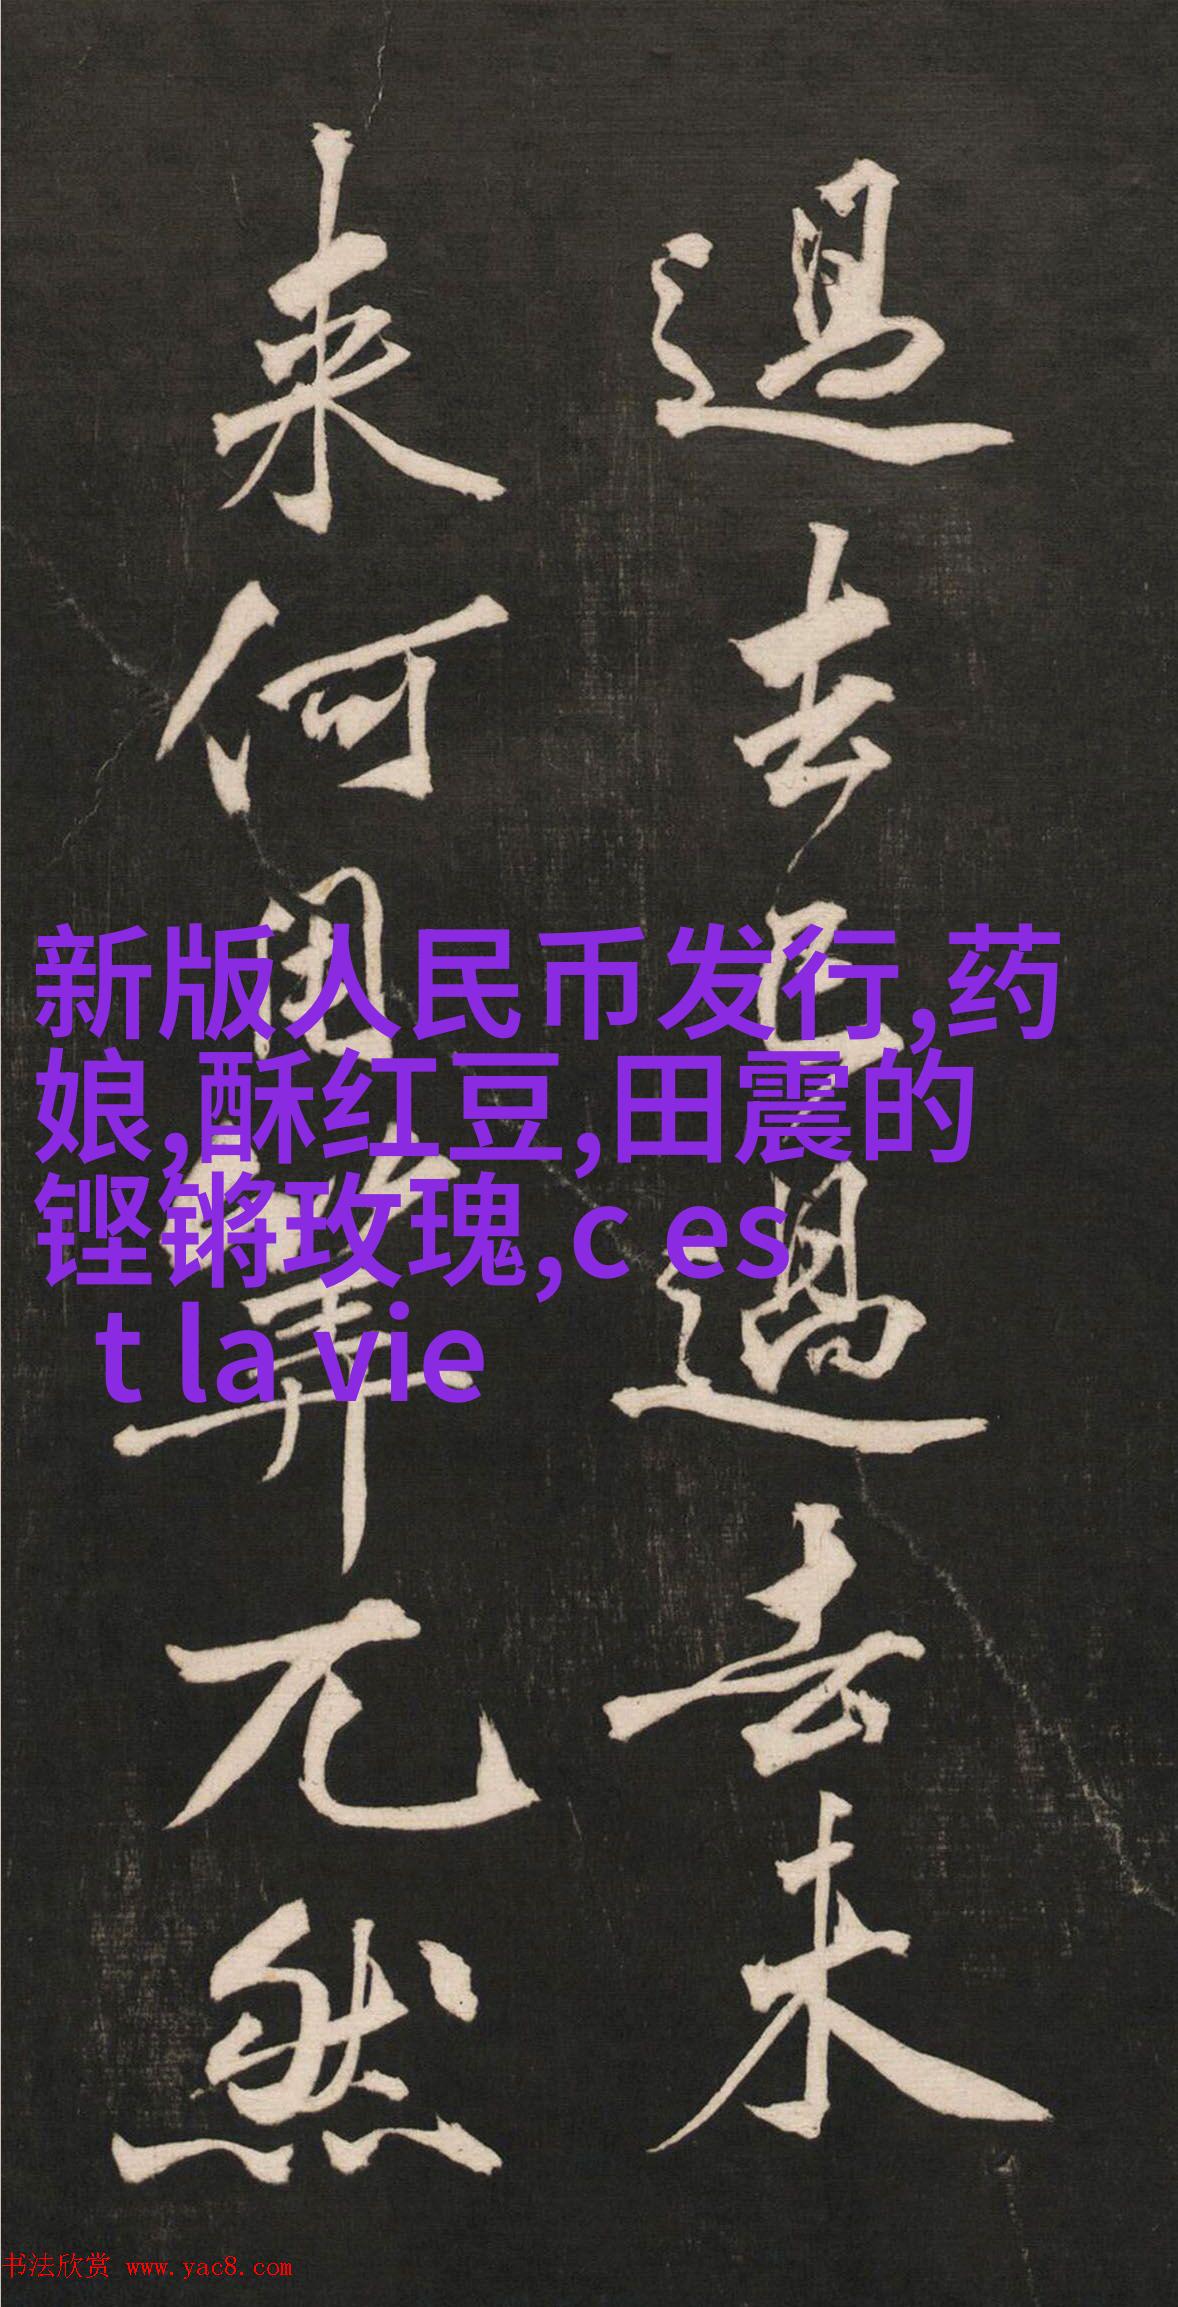 過去已過去未
来何用筭兀然
新版人民币发行,药
娘,酥红豆,田震的
铿锵玫瑰,c es
t la vie
书法欣赏 www.yac8.com